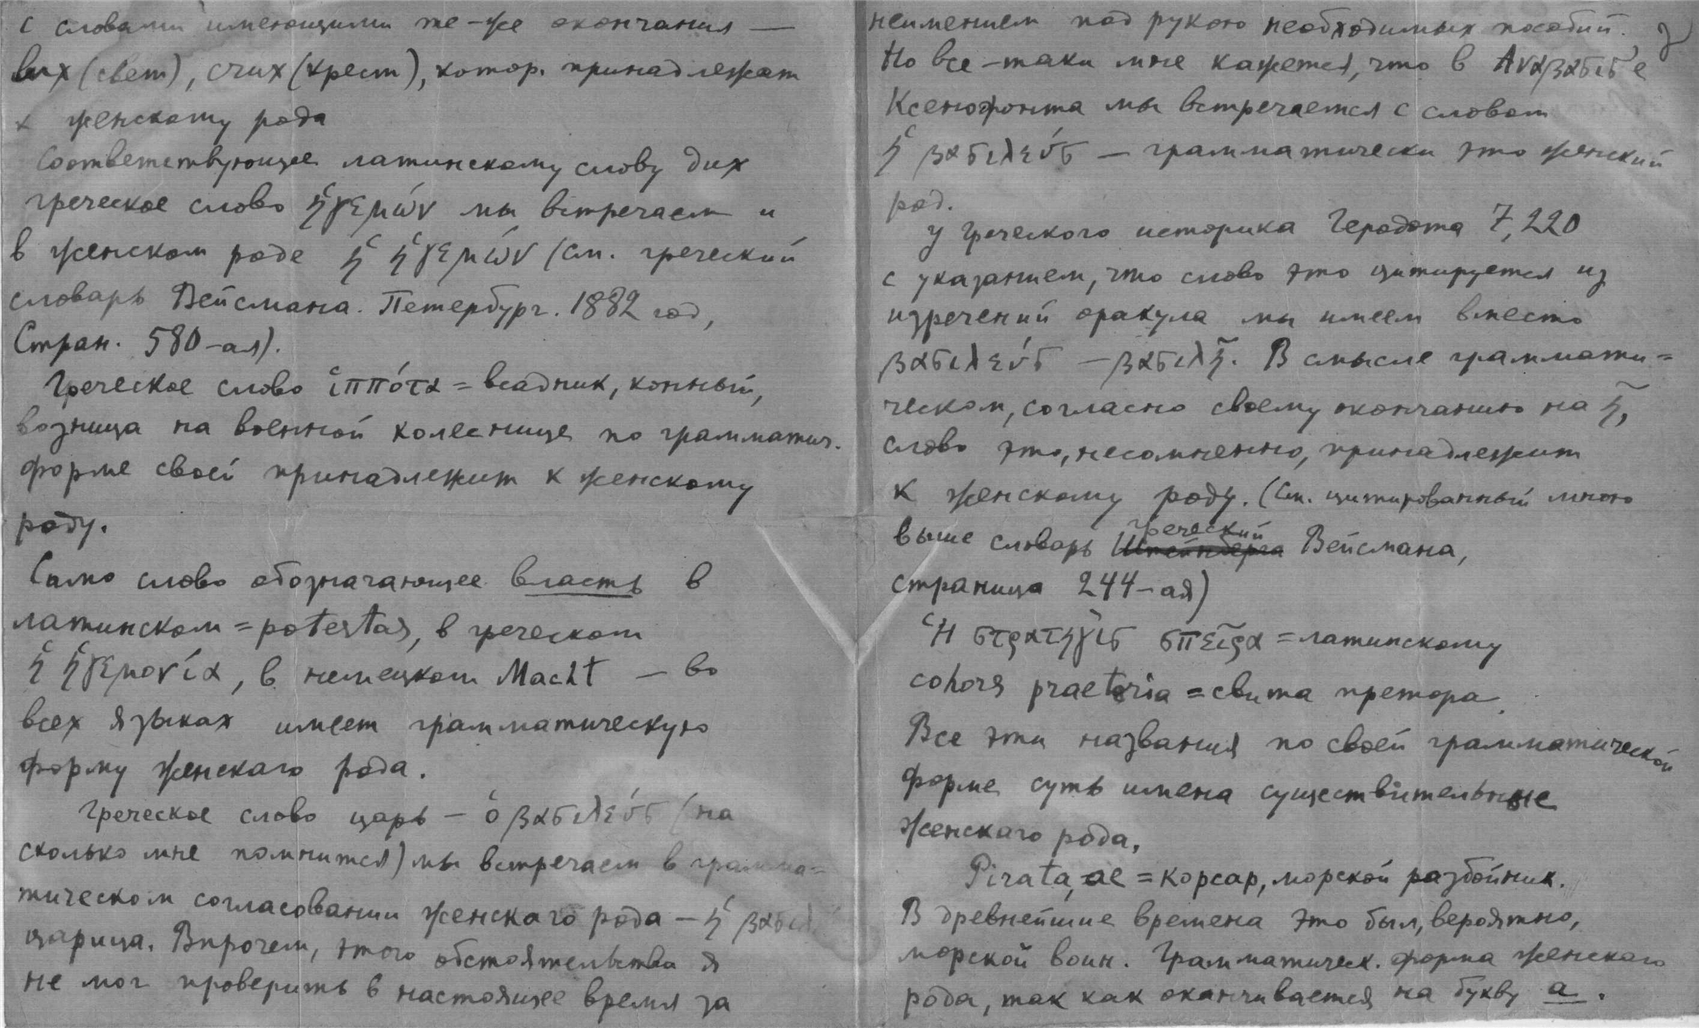 с словами имеющими те-же окончания —
lux (свет), crux (крест), котор. принадлежат
к женскому рода
Соответствующее латинскому слову dux
греческое слово ἡγεμών мы встречаем и
в женском роде ἡ ἡγεμών (см. греческий
словарь Вейсмана. Петербург. 1882 год,
Стран. 580-ая).
Греческое слово ἱππότα = всадник, конный,
возница на военной колеснице по грамматич.
форме своей принадлежит к женскому
роду.
Само слово обозначающее власть в
латинском = potestas, в греческом
ἡ ἡγεμονία, в немецком Macht — во
всех языках имеет грамматическую
форму женскаго рода.
Греческое слово царь — ὁ βασιλεύς (на
сколько мне помнится) мы встречаем в грамма=
тическом согласовании женскаго рода — ἡ
царица. Впрочем, этого обстоятельства я
не мог проверить в настоящее время за
неимением под рукою необходимых пособий.
Но все-таки мне кажется, что в Αναβασισ'е
Ксенофонта мы встречается с словом
ἡ βασιλεύς — грамматически это женский
род.
У греческого историка Геродота 7,220
с указанием, что слово это цитируется из
изречений оракула мы имеем вместо
βασιλεύς — βασιλῆ. В смысле граммати=
ческом, согласно своему окончанию на ῆ,
слово это, несомненно, принадлежит
к женскому роду. (См. цитированный мною
выше словарь греческий Вейсмана,
страница 244-ая)
Ἡ στρατηγὶς σπεῖρα = латинскому
cohors praetoria = свита претора.
Все эти названия по своей грамматической
форме суть имена существительные
женскаго рода.
Pirata, ae = корсар, морской разбойник.
В древнейшие времена это был, вероятно,
морской воин. Грамматическ. форма женскаго
рода, так как оканчивается на букву а.